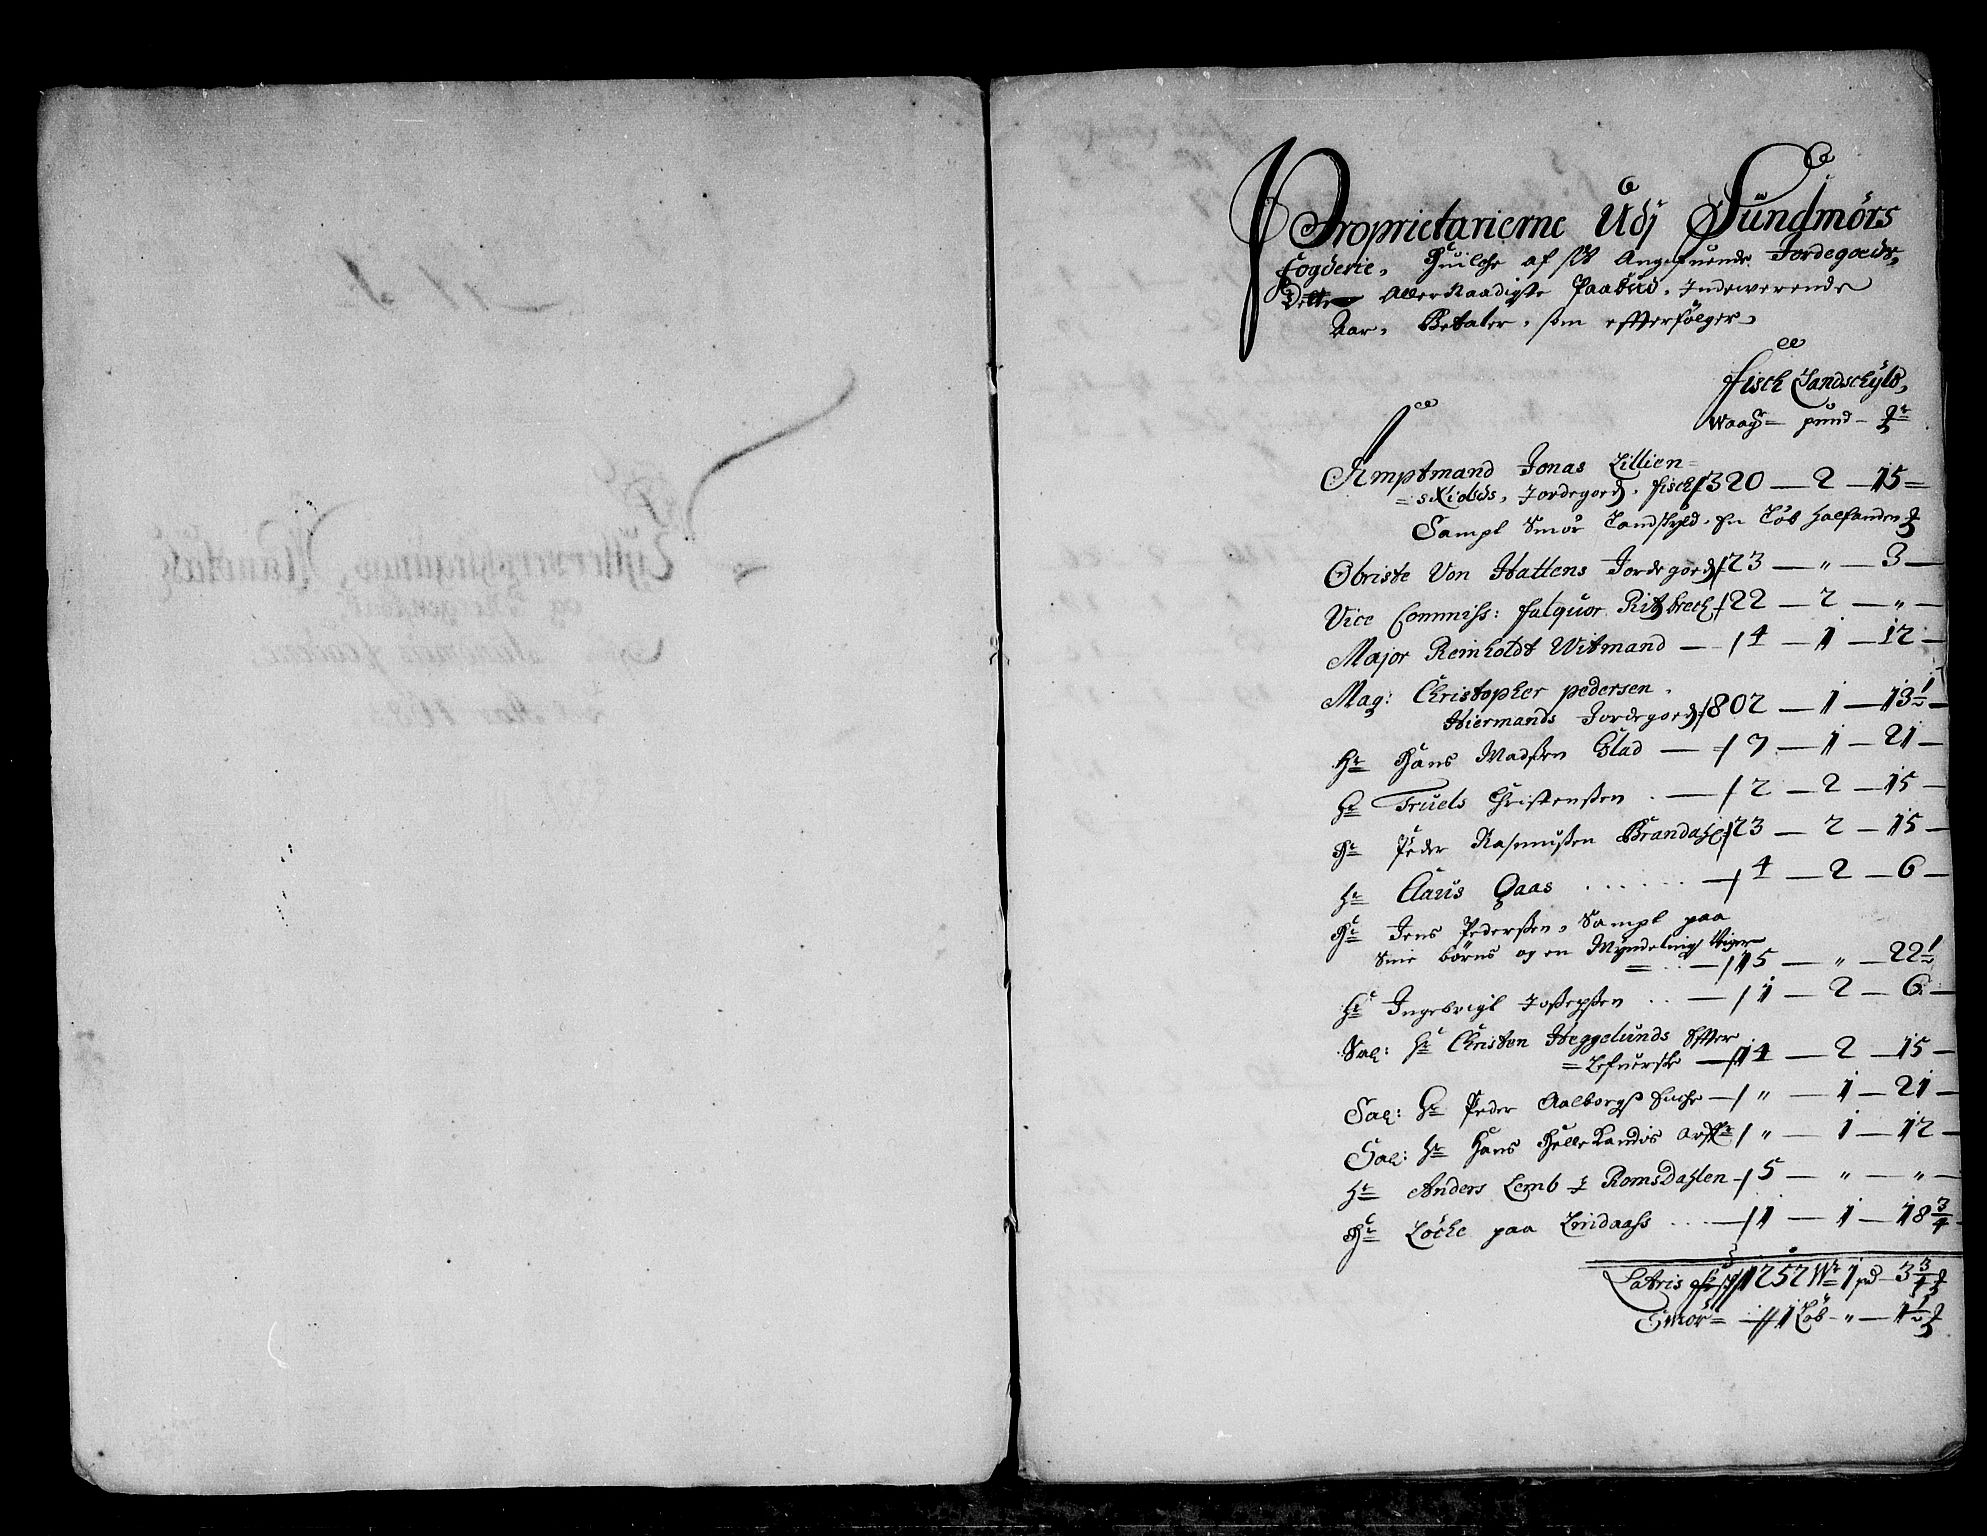 Proprietarierne Udj Sündmörs
fogderie, Huilche af sit Angefuende Jordegoeds,
Dette Aller Naadigste Paabud, Indewerende
Aar, Betaler, som efterfölger,
fisch Landschyld,
Waag= pund -
Amptmand Jonas Lillien=
=skiolds, Jordegods, fisch / 320 — 2 — 15 =
Sampt Smör Landskyld, En Löb halfanden
Obriste Von Hattens Jordegods / 23 — „ — 3 —
Vice Commiss: falquor Ritzbrech / 22 — 2 — „ —
Major Reinholdt Witmand — / 4 — 1 — 12 —
Mag: Christopher pedersen
Hiermands Jordegods / 802 — 1 — 13½ —
Hr Hans Madssen Glad — / 7 — 1 — 21 —
Hr Truels Christenssen . — / 2 — 2 — 15 —
Hr Peder Rasmussen Brandahl / 23 — 2 — 15 —
Hr Claus Gaas ...... — / 4 — 2 — 6 —
Hr Jens Pederssen, Sampt paa
Sine börns og en Myndeling
— / 15 — „ — 22½
Hr Ingebrigt Jossepssen .. — / 1 — 2 — 6 —
Sal: Hr Christen Heggelunds Efter
=Lefuerske — / 14 — 2 — 15 —
Sal: Hr Peder Aalborgs Enche — / „ — 1 — 21 —
Sal: Hr Hans Hellekandis / „ — 1 — 12 —
Hr Anders Lemb i Romsdahlen / 5 — „ — „ —
Hr Löche paa Lindaass ... — / 1 — 1 — 18¾ —
Latris / 1252 W 1 pd - 3¾
Smör= — // 1 Löb - „ — 1½